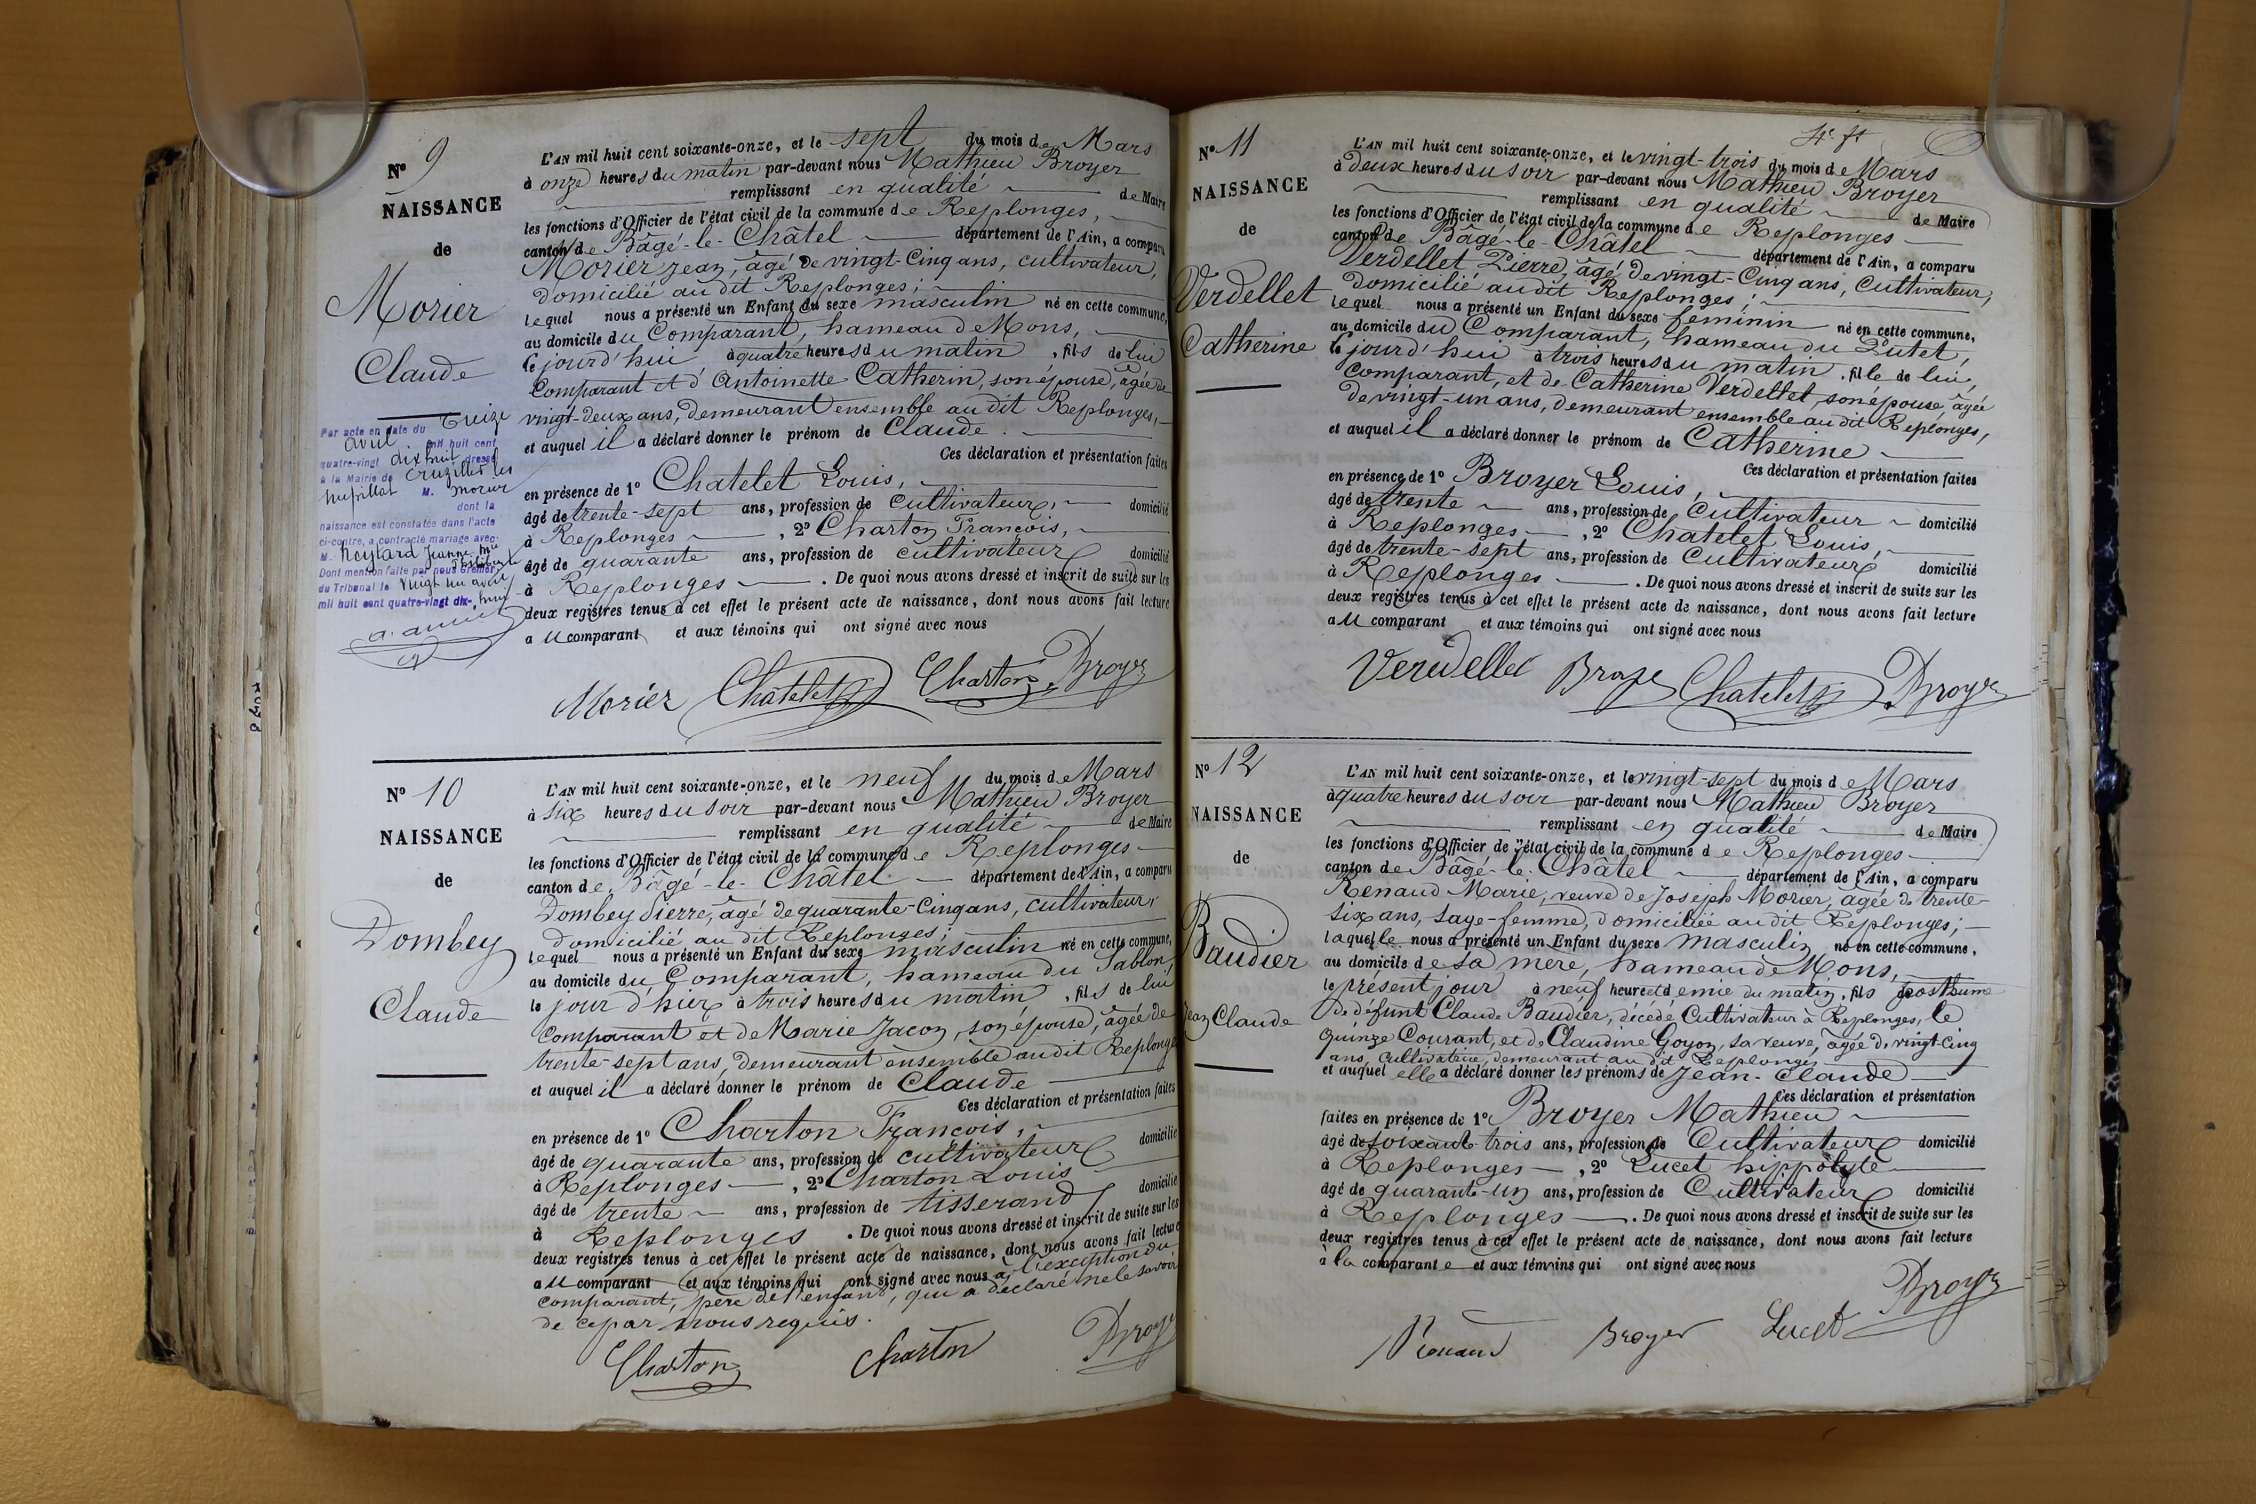 Nº 9
NAISSANCE
de
Morier
Claude
Par acte en date du treize
avril mil huit cent
quatre-vingt dix huit dressé
à la Mairie de Cruzilles les
mépillat M. Morier
dont la
naissance est constatée dans l'acte
ci-contre, a contracté mariage avec
M. Neyrard Jeanne Mie
Philiberte
Dont mention faite par nous Greffier
du Tribunal le vingt un avril
mil huit cent quatre-vingt dix-huit
L'AN mil huit cent soixante-onze, et le sept du mois de Mars
à onze heures du matin par-devant nous Mathieu Broyer
remplissant en qualité de Maire
les fonctions d'Officier de l'état civil de la commune de Replonges,
canton de Bâgé-le-Châtel département de l'Ain, a comparu
Morier Jean, âgé de vingt-Cinq ans, cultivateur,
domicilié au dit Replonges;
lequel nous a présenté un Enfant du sexe masculin né en cette commune,
au domicile du Comparant, hameau de Mons,
le jourd'hui à quatre heures du matin, fils de lui
Comparant et d'Antoinette Catherin, son épouse, âgée de
vingt-deux ans, demeurant ensemble au dit Replonges,
et auquel il a déclaré donner le prénom de Claude.
Ces déclaration et présentation faites
en présence de 1º Chatelet Louis,
âgé de trente-sept ans, profession de cultivateur, domicilié
à Replonges, 2º Charton François,
âgé de quarante ans, profession de cultivateur domicilié
à Replonges. De quoi nous avons dressé et inscrit de suite sur les
deux registres tenus à cet effet le présent acte de naissance, dont nous avons fait lecture
au comparant et aux témoins qui ont signé avec nous
Morier Chatelet Charton Broyer
Nº 10
NAISSANCE
de
Dombey
Claude
L'AN mil huit cent soixante-onze, et le neuf du mois de Mars
à six heures du soir par-devant nous Mathieu Broyer
remplissant en qualité de Maire
les fonctions d'Officier de l'état civil de la commune de Replonges
canton de Bâgé-le-Châtel département de l'Ain, a comparu
Dombey Pierre, âgé de quarante-Cinq ans, cultivateur,
domicilié au dit Replonges;
lequel nous a présenté un Enfant du sexe masculin né en cette commune,
au domicile du Comparant, hameau du Sablon,
le jour d'hier à trois heures du matin, fils de lui
Comparant et de Marie Jacon, son épouse, âgée de
trente-sept ans, demeurant ensemble au dit Replonges
et auquel il a déclaré donner le prénom de Claude
Ces déclaration et présentation faites
en présence de 1º Charton François,
âgé de quarante ans, profession de cultivateur domicilié
à Replonges, 2º Charton Louis
âgé de trente ans, profession de tisserand domicilié
à Replonges. De quoi nous avons dressé et inscrit de suite sur les
deux registres tenus à cet effet le présent acte de naissance, dont nous avons fait lecture
au comparant et aux témoins qui ont signé avec nous à l'exception du
comparant, père de l'enfant, qui a déclaré ne le savoir
de ce par nous requis.
Charton Charton Broyer
Nº 11
NAISSANCE
de
Verdellet
Catherine
4e ft
L'AN mil huit cent soixante-onze, et le vingt-trois du mois de Mars
à deux heures du soir par-devant nous Mathieu Broyer
remplissant en qualité de Maire
les fonctions d'Officier de l'état civil de la commune de Replonges
canton de Bâgé-le-Châtel département de l'Ain, a comparu
Verdellet Pierre, âgé de vingt-Cinq ans, Cultivateur,
domicilié au dit Replonges;
lequel nous a présenté un Enfant du sexe féminin né en cette commune,
au domicile du Comparant, hameau du Putet,
le jourd'hui à trois heures du matin, fille de lui,
Comparant, et de Catherine Verdellet, son épouse, âgée
de vingt-un ans, demeurant ensemble au dit Replonges,
et auquel il a déclaré donner le prénom de Catherine
Ces déclaration et présentation faites
en présence de 1º Broyer Louis,
âgé de trente ans, profession de Cultivateur domicilié
à Replonges, 2º Chatelet Louis,
âgé de trente-sept ans, profession de Cultivateur domicilié
à Replonges. De quoi nous avons dressé et inscrit de suite sur les
deux registres tenus à cet effet le présent acte de naissance, dont nous avons fait lecture
au comparant et aux témoins qui ont signé avec nous
Verdellet Broye Chatelet Broyer
Nº 12
NAISSANCE
de
Baudier
Jean Claude
L'AN mil huit cent soixante-onze, et le vingt-sept du mois de Mars
à quatre heures du soir par-devant nous Mathieu Broyer
remplissant en qualité de Maire
les fonctions d'Officier de l'état civil de la commune de Replonges
canton de Bâgé-le-Châtel département de l'Ain, a comparu
Renaud Marie, veuve de Joseph Morier, âgée de trente-
six ans, sage-femme, domiciliée au dit Replonges;
laquelle nous a présenté un Enfant du sexe masculin né en cette commune,
au domicile de sa mère, hameau de Mons,
le présent jour à neuf heures et demie du matin, fils posthume
de défunt Claude Baudier, décédé Cultivateur à Replonges, le
quinze Courant, et de Claudine Goyon, sa veuve, âgée de vingt-cinq
ans, Cultivatrice, demeurant au dit Replonges
et auquel elle a déclaré donner les prénoms de Jean-Claude
Ces déclaration et présentation
faites en présence de 1º Broyer Mathieu
âgé de soixante trois ans, profession de Cultivateur domicilié
à Replonges, 2º Lucet hippolyte
âgé de quarante-un ans, profession de Cultivateur domicilié
à Replonges. De quoi nous avons dressé et inscrit de suite sur les
deux registres tenus à cet effet le présent acte de naissance, dont nous avons fait lecture
à la comparante et aux témoins qui ont signé avec nous
Renaud Broyer Lucet Broyer